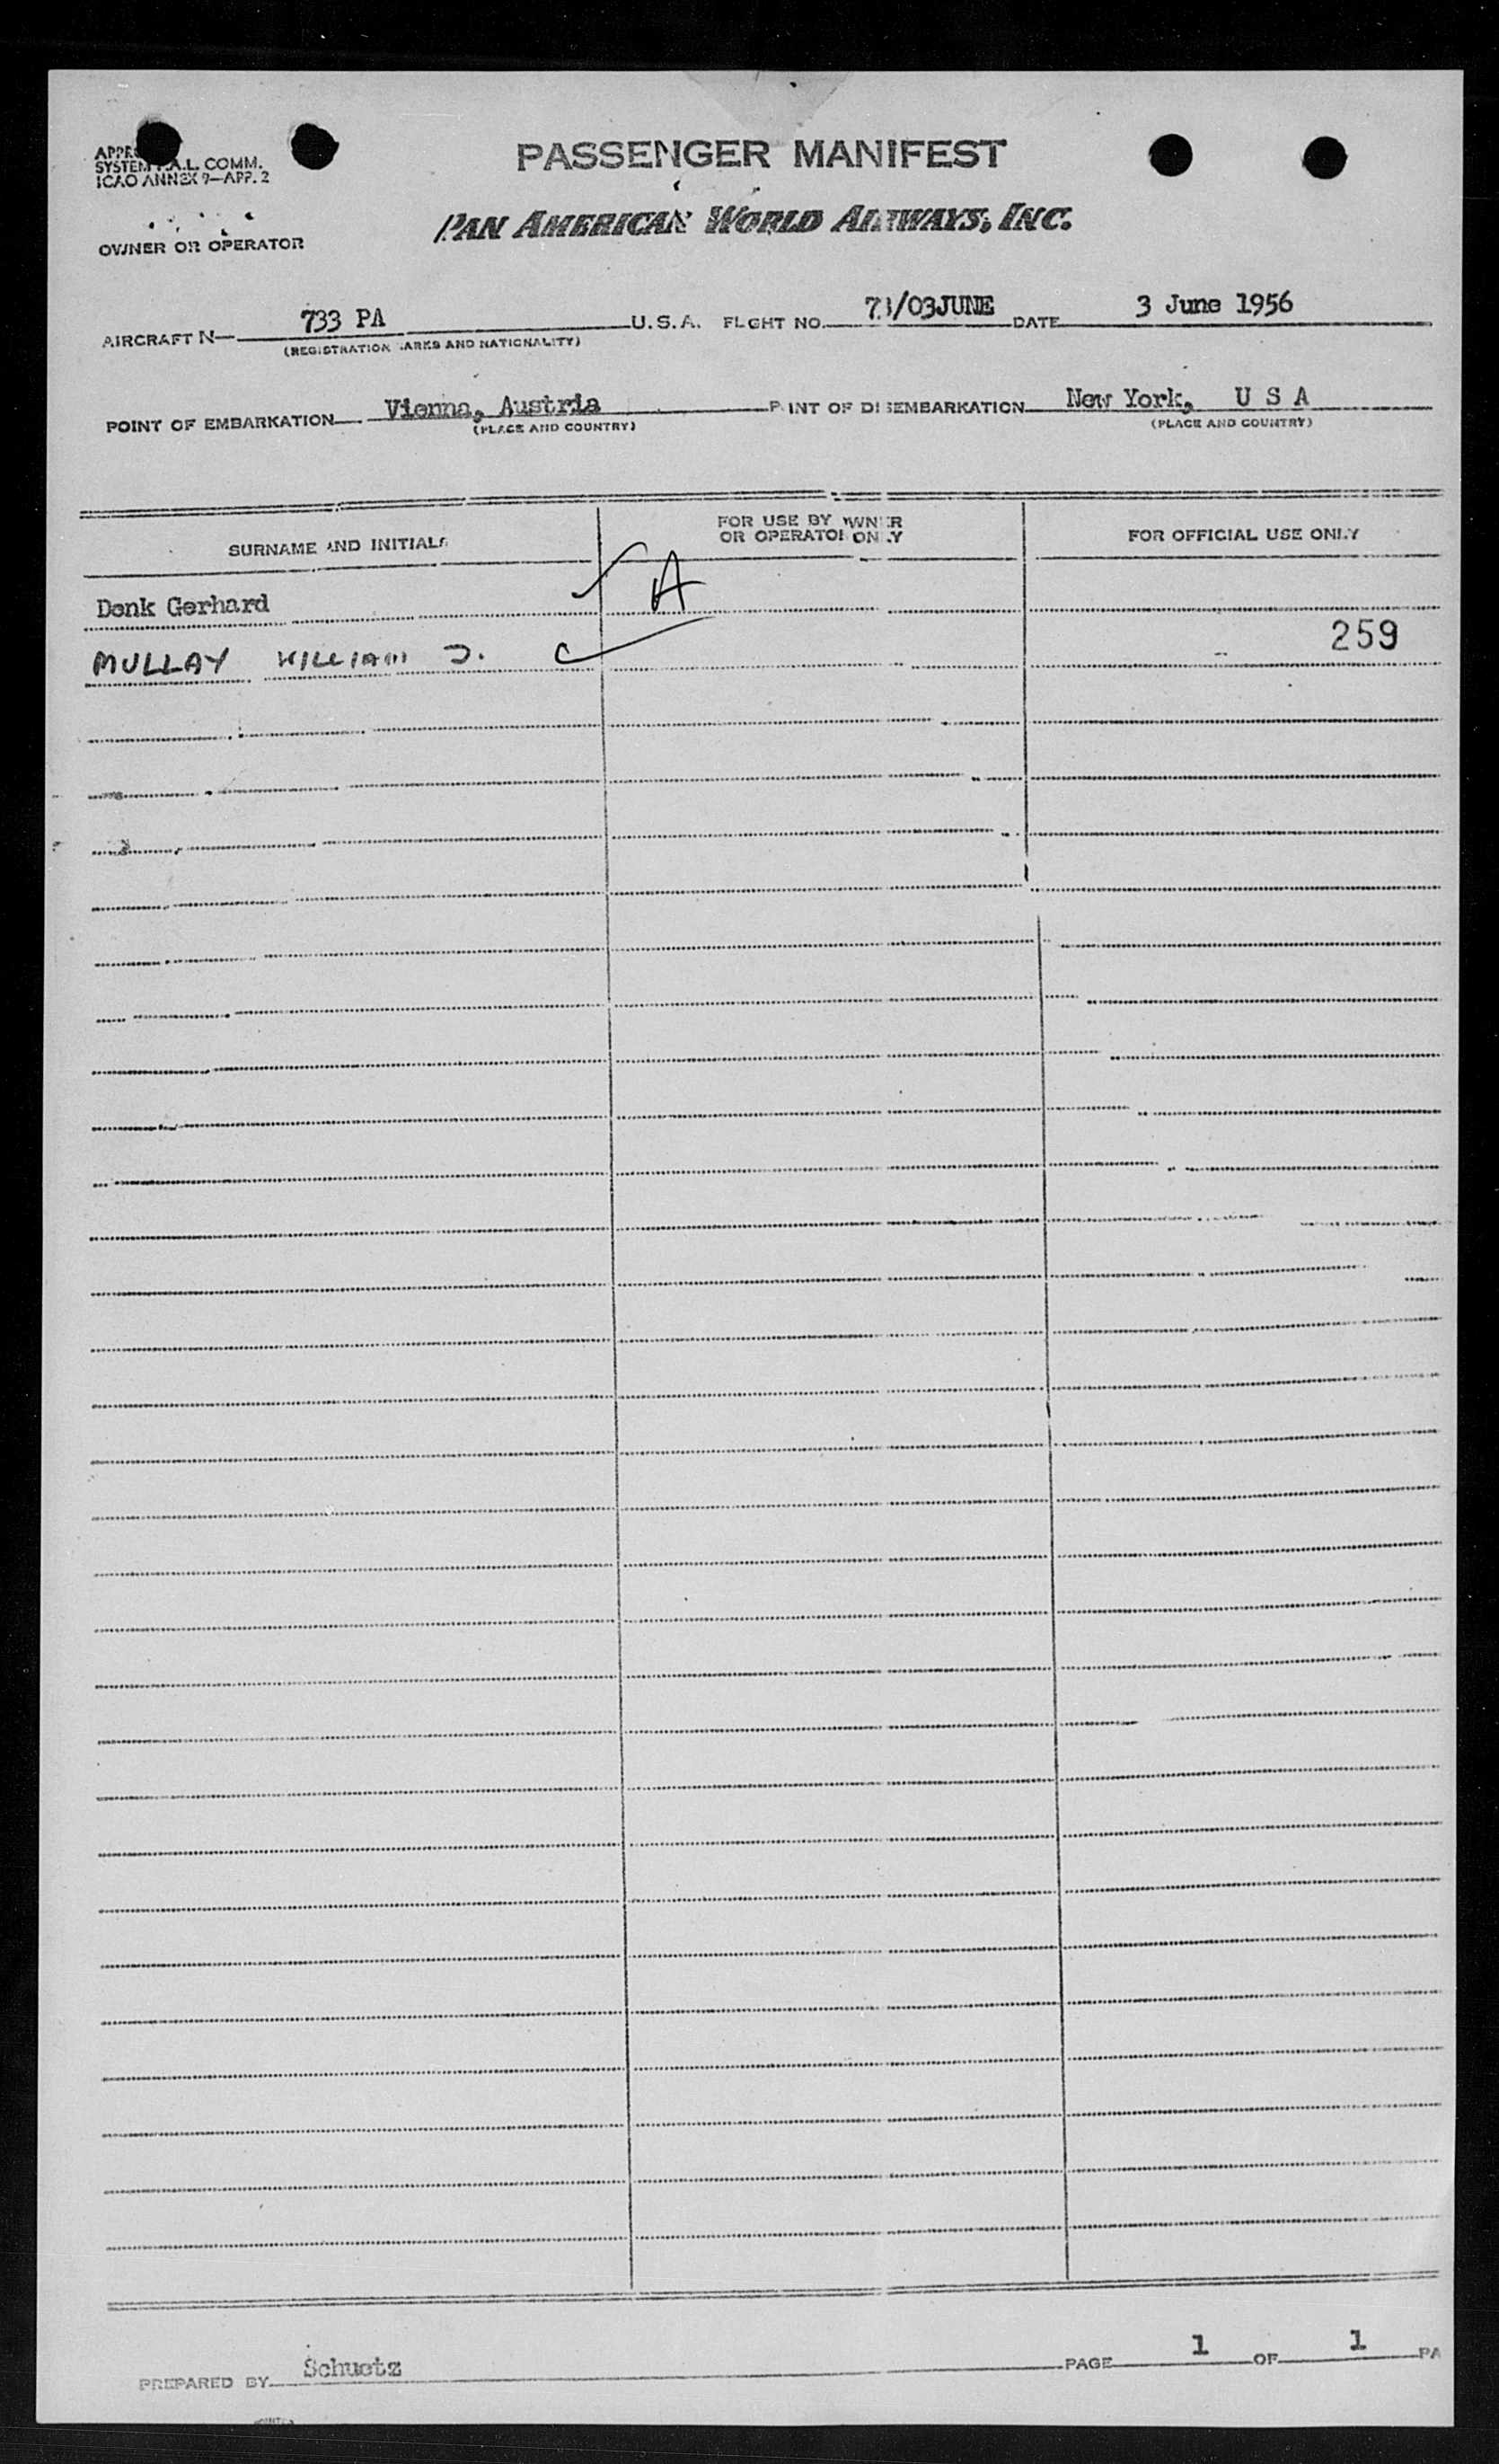 PASSENGER MANIFEST
SYSTEM COMM.
ICAO ANNEX 9—APP. 2
PAN AMERICAN WORLD AIRWAYS, INC.
OWNER OR OPERATOR
AIRCRAFT N— 733 PA U.S.A. FLGHT NO. /03JUNE DATE 3 June 1956
(REGISTRATION MARKS AND NATIONALITY)
POINT OF EMBARKATION Vienna, Austria POINT OF DISEMBARKATION New York, U S A
(PLACE AND COUNTRY) (PLACE AND COUNTRY)
SURNAME AND INITIALS FOR USE BY OWNER OR OPERATOR ONLY FOR OFFICIAL USE ONLY
Denk Gerhard A
MULLAY WILLIAM J. 259
PREPARED BY Schuetz PAGE 1 OF 1 PA